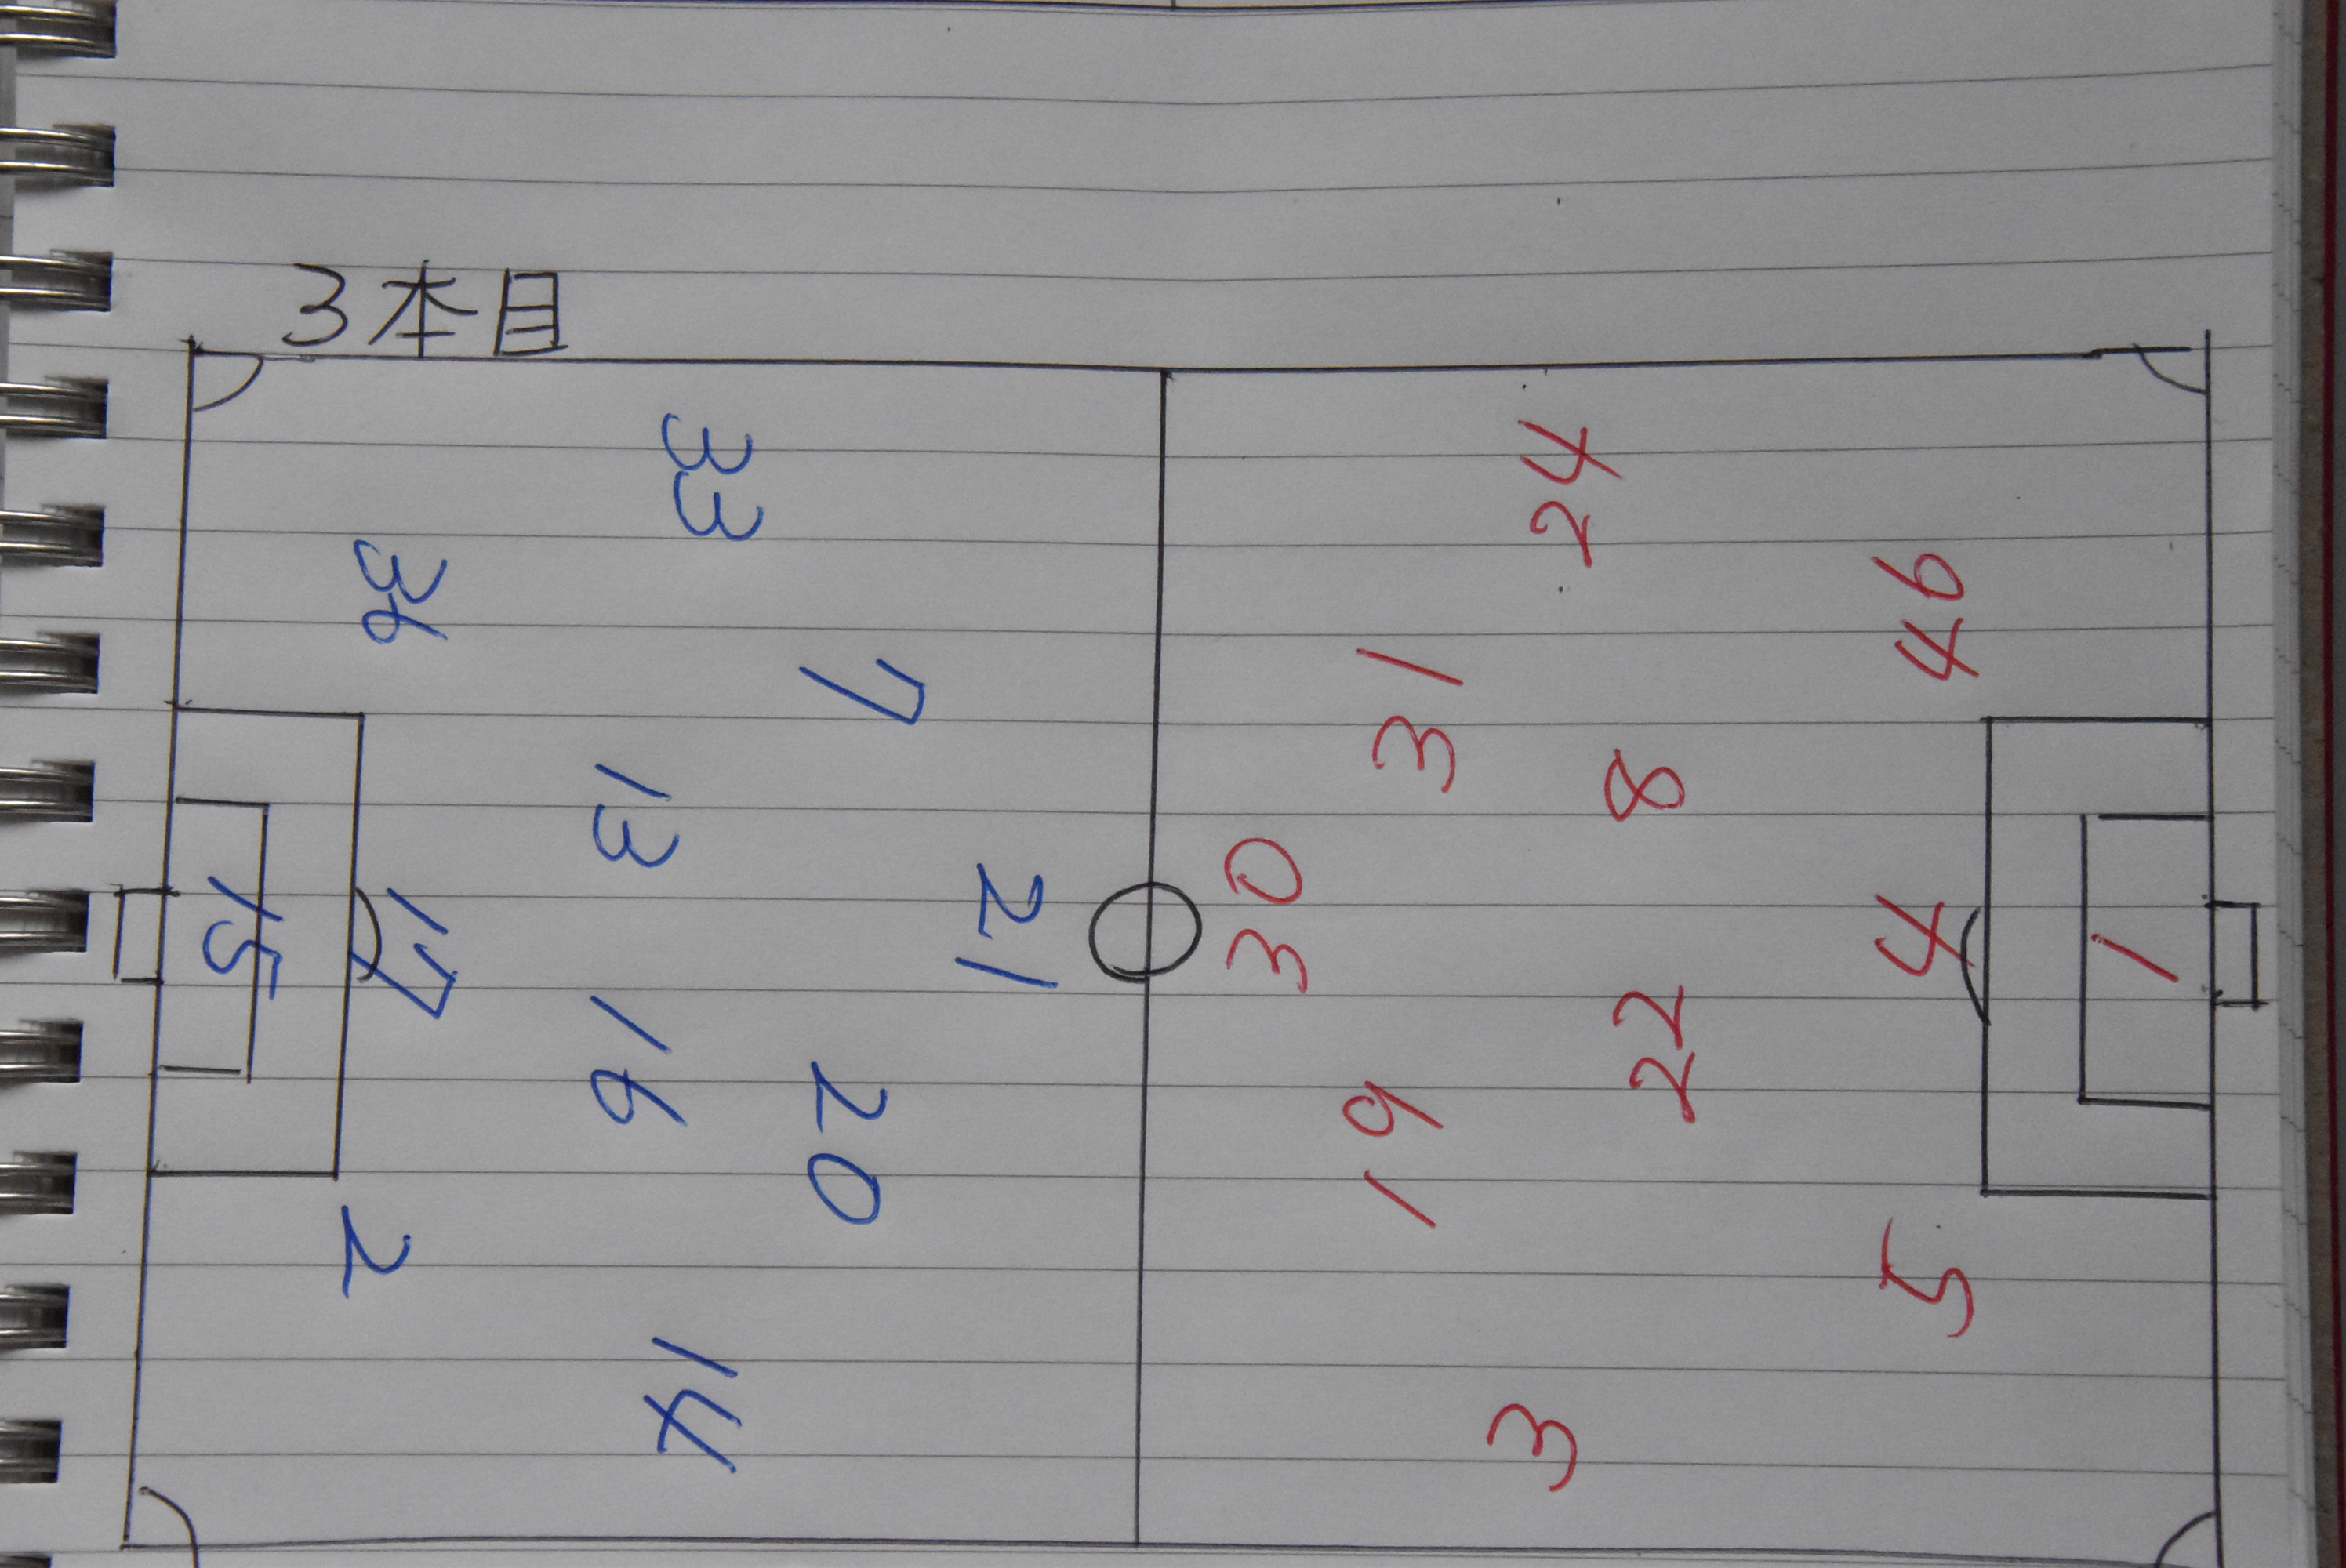 3本目
33
36
7
13
15
17
21
16
20
2
14
24
46
31
8
30
4
1
22
19
5
3